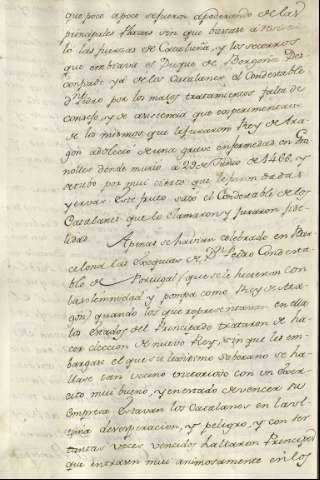 que poco a poco se fueron apoderando de las
principales Plazas sin que bastase a resistir
lo las fuerzas de Cataluña, y los socorros
que embiava el Duque de Borgoña. Des
confiado ya de los Catalanes el Condestable
Dⁿ Pedro por los malos tratamientos falta de
consejo, y de asistencia que experimentava
de los mismos que le juraron Rey de Ara
gon adoleció de una grave enfermedad en Gra
nolles donde murió a 29 de Junio de 1466, y
se tubo por mui cierto que le fueron dadas
yervas. Este fruto sacó el Condestable de los
Catalanes que lo llamaron y juraron fide
lidad.
Apenas se havian celebrado en Bar
celona las Exequias de Dⁿ Pedro Condesta
ble de Portugal (que se le hicieron con
la solemnidad y pompa como Rey de Ara
gon) quando los que representavan en ella
los Estados del Principado trataron de ha
cer eleccion de nuevo Rey, sin que les em
bargase el que su legitimo Soberano se ha
llase tan vecino victorioso con un Exer
cito mui bueno, y en estado de vencer su
empresa. Estavan los Catalanes en la ul
tima desesperacion, y peligro, y con ser
tantas veces vencidos hallaron Principes
que entraren mui animosamente en los